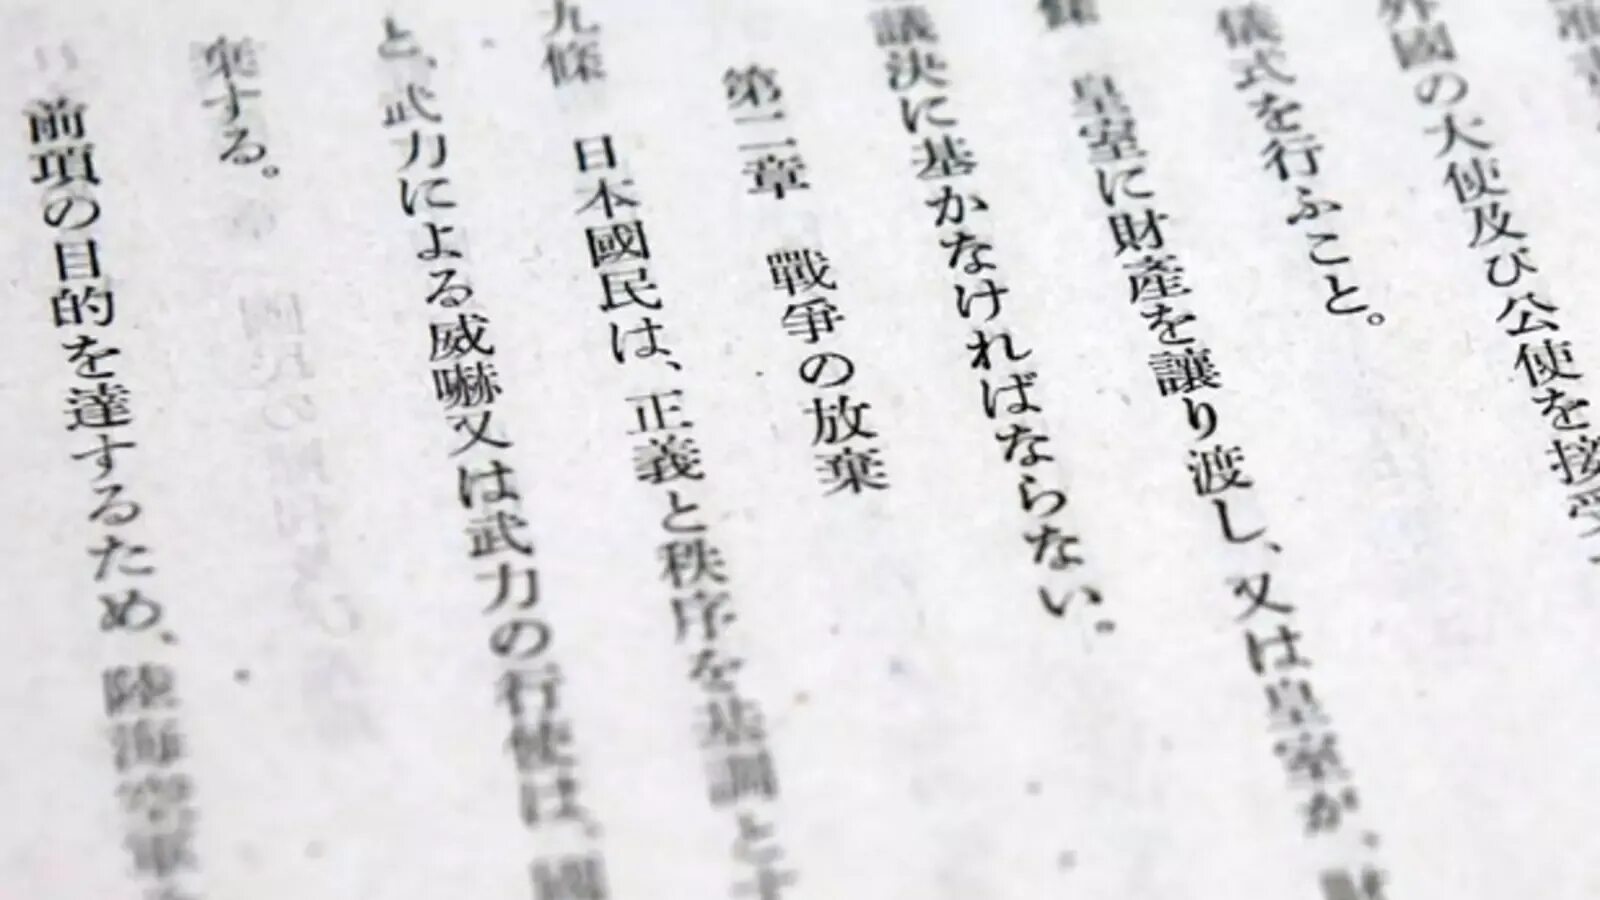 外國の大使及び公使を接受
儀式を行ふこと。
條　皇室に財産を讓り渡し、又は皇室が、財
議決に基かなければならない。
第二章　戰爭の放棄
九條　日本國民は、正義と秩序を基調とす
と、武力による威嚇又は武力の行使は、國
棄する。
前項の目的を達するため、陸海空軍